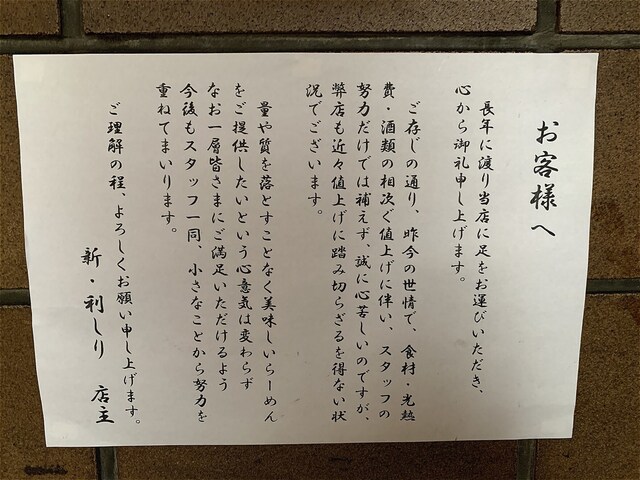 お客様へ
長年に渡り当店に足をお運びいただき、
心から御礼申し上げます。
ご存じの通り、昨今の世情で、食材・光熱
費・酒類の相次ぐ値上げに伴い、スタッフの
努力だけでは補えず、誠に心苦しいのですが、
弊店も近々値上げに踏み切らざるを得ない状
況でございます。
量や質を落とすことなく美味しいらーめん
をご提供したいという心意気は変わらず
なお一層皆さまにご満足いただけるよう
今後もスタッフ一同、小さなことから努力を
重ねてまいります。
ご理解の程、よろしくお願い申し上げます。
新・利しり 店主